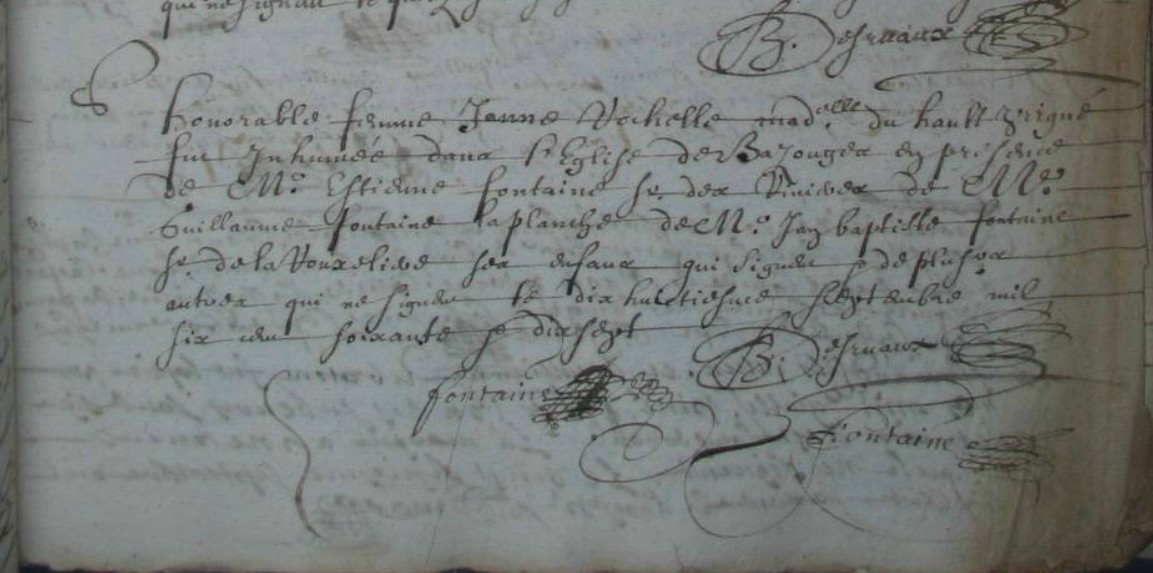 qui ne signent le
B. Desruaux
honorable femme Janne Rochelle mad.elle du hault
fut Inhumée dans l'Eglise de Bazouges en presence
de Me. Estienne fontaine sr. des de Me.
Guillaume fontaine laplanche de Me. Jan baptiste fontaine
sr. de la ses enfans qui signent & de plusrs
autres qui ne signent le dix huictiesme septembre mil
six cens soixante & dix sept
B. Desruaux
fontaine
fontaine